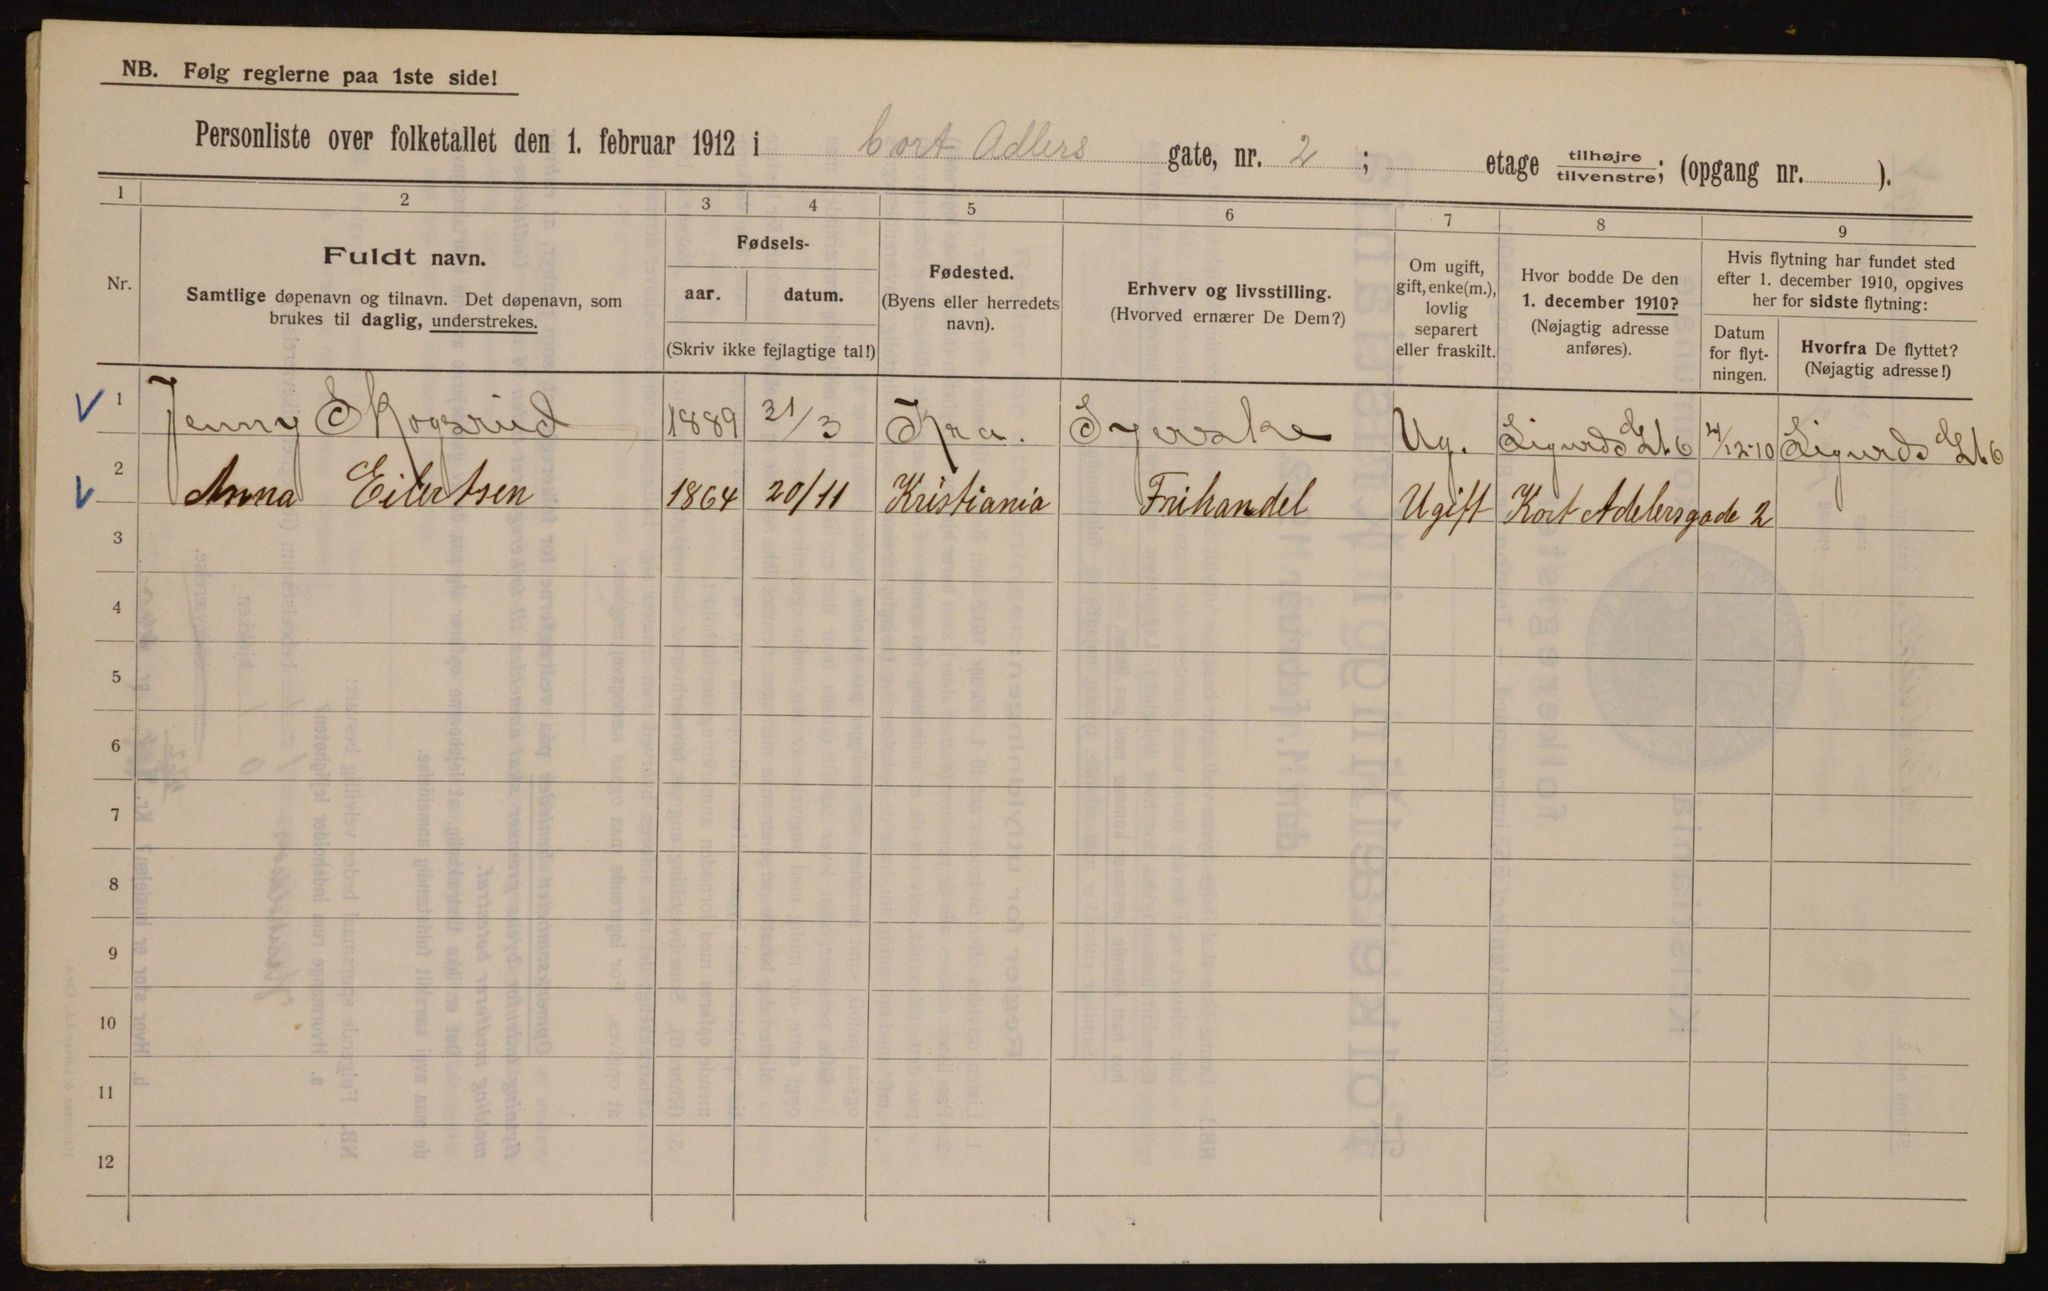 NB. Følg reglerne paa 1ste side!
Personliste over folketallet den 1. februar 1912 i Cort Adlers gate, nr. 2 ; etage tilhøjre tilvenstre; (opgang nr. ).
1 2 3 4 5 6 7 8 9
Nr.
Fuldt navn.
Samtlige døpenavn og tilnavn. Det døpenavn, som
brukes til daglig, understrekes.
Fødsels-
aar. datum.
(Skriv ikke fejlagtige tal!)
Fødested.
(Byens eller herredets
navn).
Erhverv og livsstilling.
(Hvorved ernærer De Dem?)
Om ugift,
gift, enke(m.),
lovlig
separert
eller fraskilt.
Hvor bodde De den
1. december 1910?
(Nøjagtig adresse
anføres).
Hvis flytning har fundet sted
efter 1. december 1910, opgives
her for sidste flytning:
Datum
for flyt-
ningen.
Hvorfra De flyttet?
(Nøjagtig adresse!)
1 Jenny Skogsrud 1889 21/3 Kra. Syerske Ug. Sigurds Gt. 6 4/12-10 Sigurds Gt. 6
2 Anna Eilertsen 1864 20/11 Kristiania Frihandel Ugift Kort Adelersgade 2
3
4
5
6
7
8
9
10
11
12